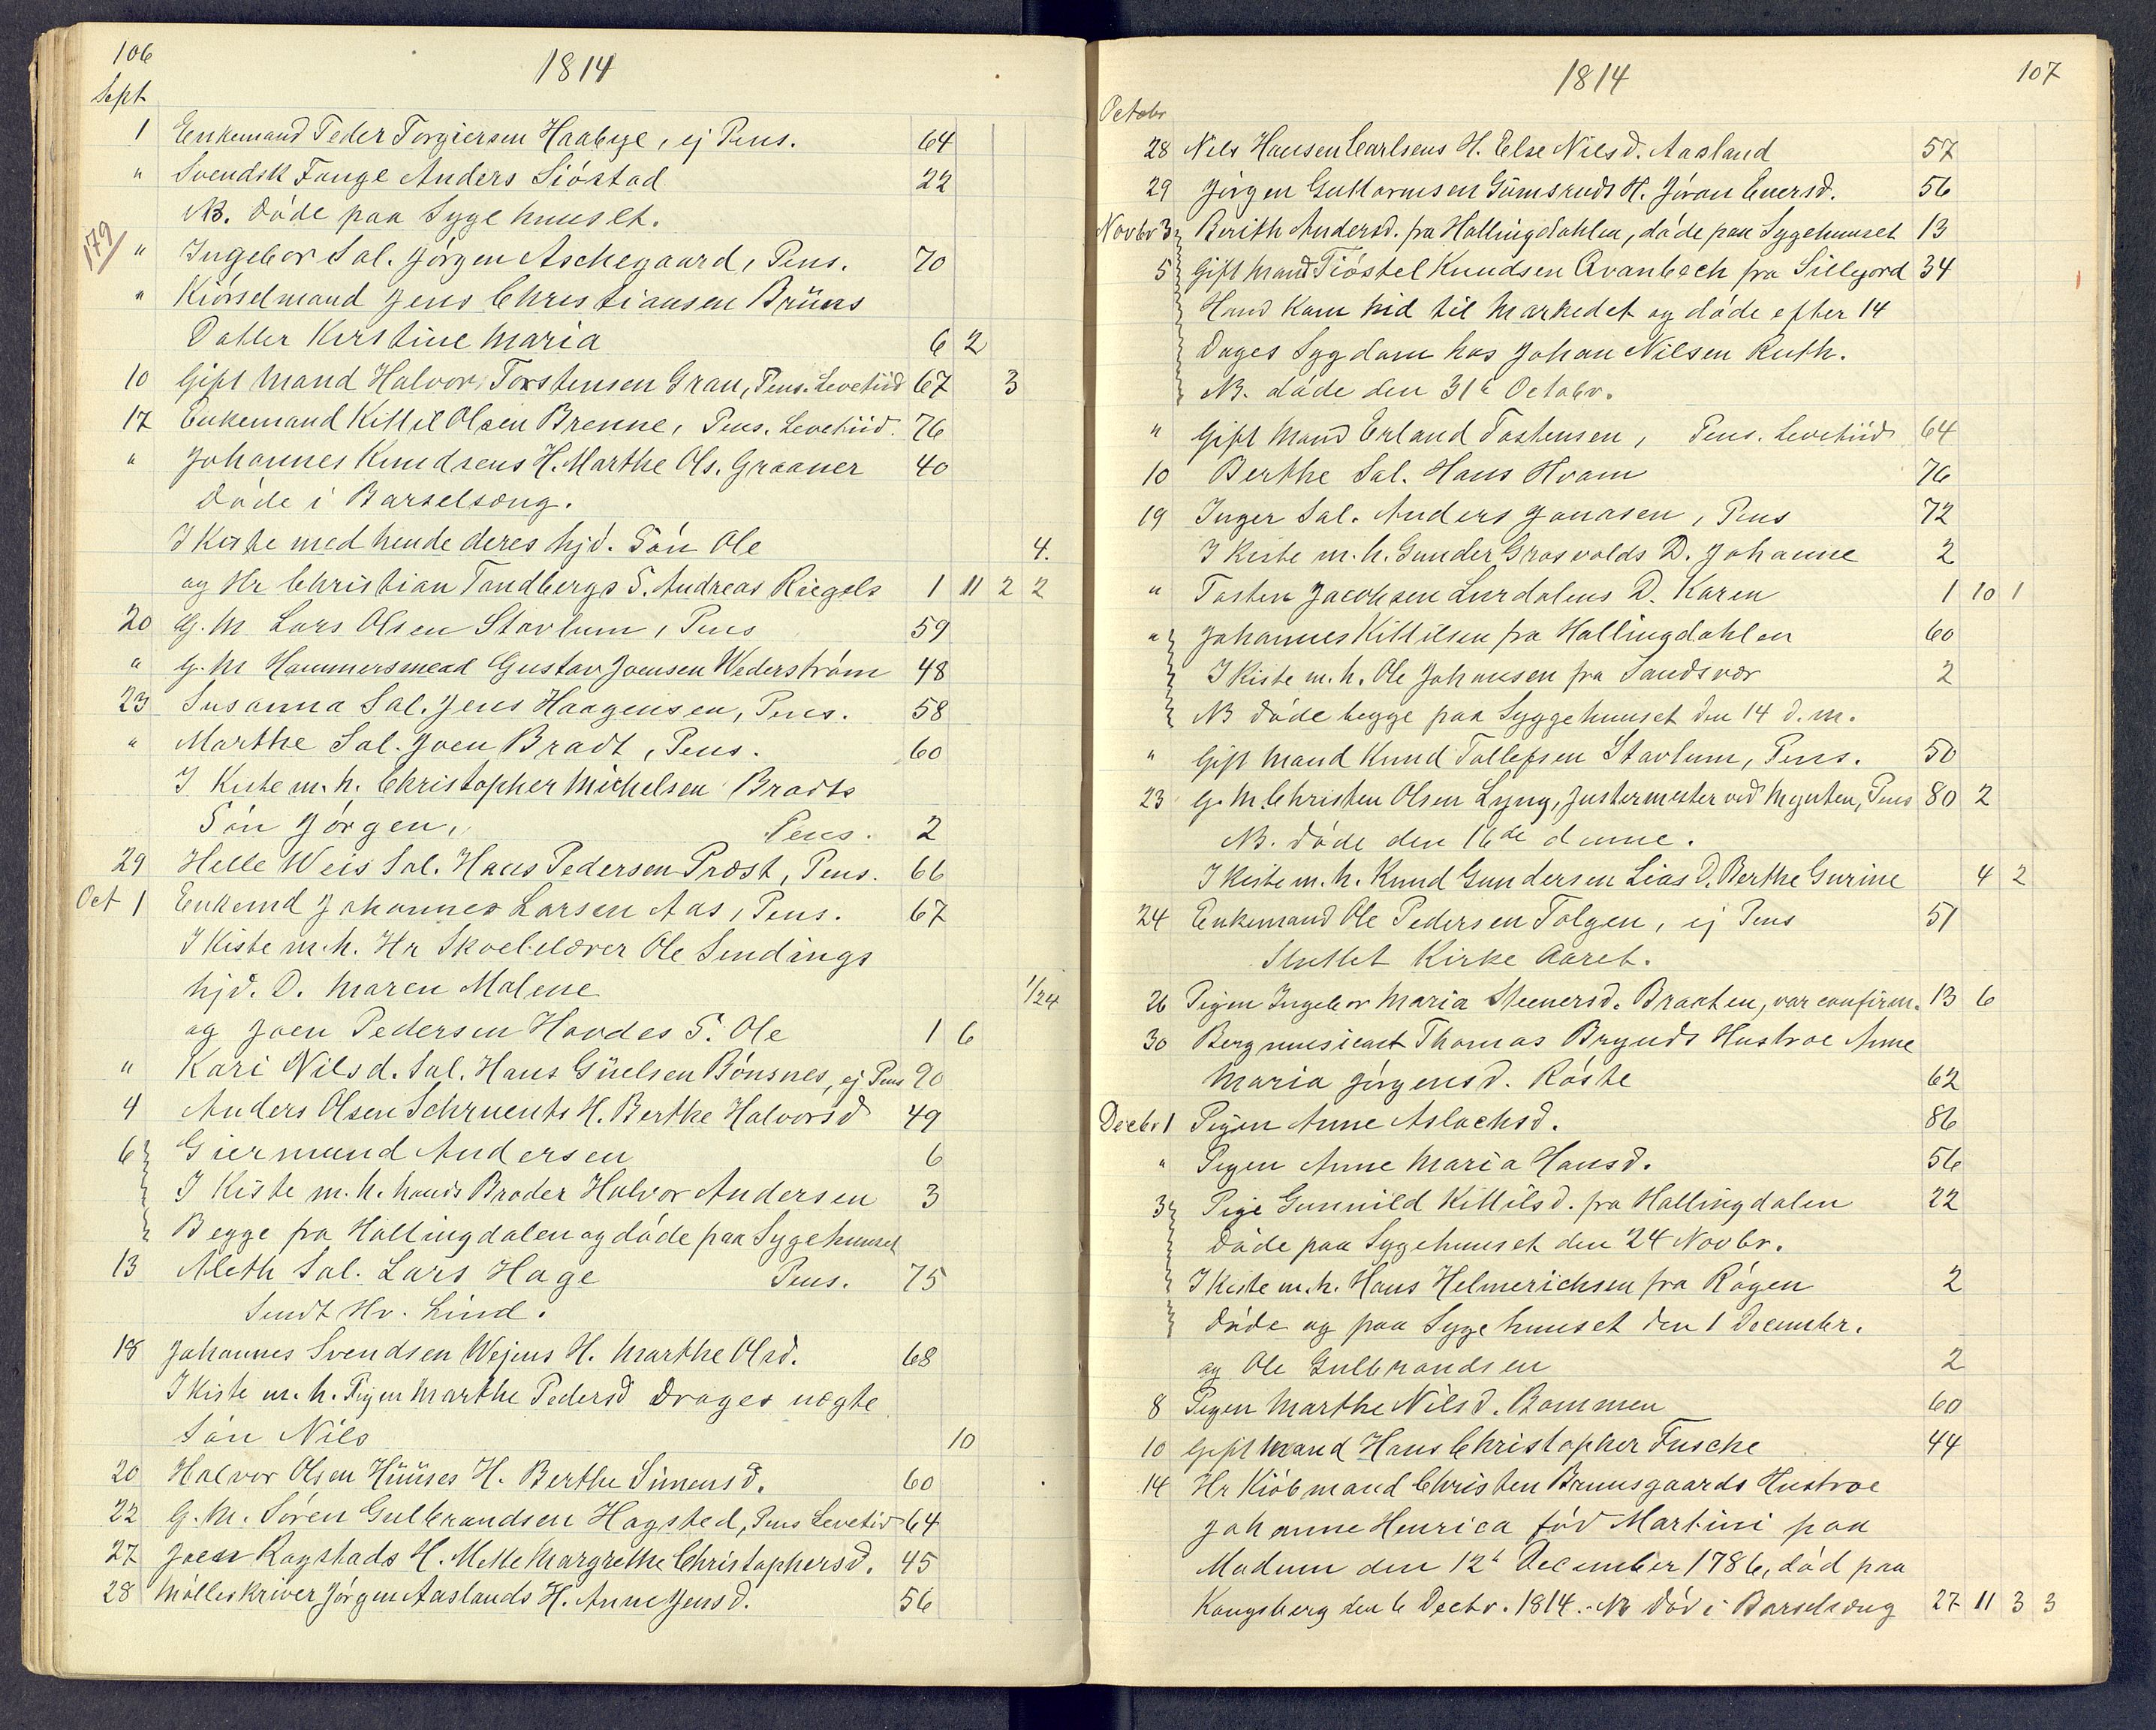 106
1814
Sept
1 Enkemand Peder Torgiersen Haabye, ej Pens. 64
" Svendsk Fange Anders Siöstad 22
NB. döde paa Sygehuuset.
179/
" Ingebor Sal. Jörgen Aschegaard, Pens. 70
" Kiörselmand Jens Christiansen Brüuns
Datter Kirstine Maria 6 2
10 Gift Mand Halvor Torstensen Grau, Pens. Levetiid 67 3
17 Enkemand Kittil Olsen Brenne, Pens. Levetiid. 76
" Johannes Knudsens H. Marthe Ols. Graaner 40
döde i Barselsæng.
I Kiste med hende deres hjd. Sön Ole 4.
og Hr Christian Tandbergs S. Andreas Riegels 1 11 2 2
20 G. M. Lars Olsen Stavlum, Pens 59
" G. M Hammersmed Gustav Joensen Wederström 48
23 Susanna Sal. Jens Haagensen, Pens. 58
" Marthe Sal. Joen Bradt, Pens. 60
I Kiste m. h. Christopher Michelsen Bradts
Sön Jörgen, Pens. 2
29 Helle Weis Sal. Hans Pedersen Præst, Pens. 66
Oct 1 Enkemd Johannes Larsen Aas, Pens. 67
I Kiste m. h. Hr Skoelelærer Ole Sindings
hjd. D. Maren Malene 1/24
og Joen Pedersen Hovdes S. Ole 1 6
" Kari Nilsd. Sal. Hans Güelsen Bönsnes, ej Pens 90
4 Anders Olsen Schruents H. Berthe Halvorsd 49
6 Giermund Andersen 6
I Kiste m. h. hands Broder Halvor Andersen 3
Begge fra Hallingdalen og döde paa Sygehuuset
13 Aleth Sal. Lars Hage Pens. 75
Sendt Hr. Lind.
18 Johannes Svendsen Wejens H. Marthe Olsd. 68
I Kiste m. h. Pigen Marthe Pedersd Drages uægte
Sön Nils 10
20 Halvor Olsen Hüüses H. Berthe Simensd. 60
22 G. M. Sören Gulbrandsen Hagsted, Pens Levetid 64
27 Joen Ragstads H. Mette Margrethe Christophersd. 45
28 Mölleskriver Jörgen Aaslands H. Anne Jensd. 56
1814
107
Octobr
28 Nils Hansen Carlsens H. Else Nilsd. Aasland 57
29 Jörgen Guttormsen Gumsruds H. Jöran Enersd. 56
Novbr 3 Berith Andersd. fra Hallingdahlen, döde paa Sygehuuset 13
5 Gift Mand Tiöstel Knudsen Qvanbech fra Sillejord 34
Hand Kom hid til Markedet og döde efter 14
Dages Sygdom hos Johan Nilsen Ruth.
NB. döde den 31te Octobr.
" Gift Mand Erland Tostensen, Pens. Levetiid 64
10 Berthe Sal. Hans Hvam 76
19 Inger Sal. Anders Jonasen, Pens 72
I Kiste m. h. Gunder Grosvolds D. Johanne 2
" Tosten Jacobsen Lurdalens D. Karen 1 10 1
" Johannes Kittilsen fra Hallingdahlen 60
I Kiste m. h. Ole Johansen fra Sandsvær 2
NB döde begge paa Syggehuuset den 14 d. m.
" Gift Mand Knud Tollefsen Stavlum, Pens. 50
23 G. M. Christen Olsen Lyng, Justermester ved Mynten, Pens 80 2
NB. döde den 16de denne.
I Kiste m. h. Knud Gundersen Lias D. Berthe Gurine 4 2
24 Enkemand Ole Pedersen Tolgen, ej Pens 51
Sluttet Kirke Aaret.
26 Pigen Ingebor Maria Steenersd. Braaten, var confirm. 13 6
30 Bergmusicant Thomas Brynds Hustroe Anne
Maria Jörgensd. Röste 62
Decbr 1 Pigen Anne Aslachsd. 86
" Pigen Anne Maria Hansd. 56
3 Pige Gunnild Kittilsd. fra Hallingdalen 22
döde paa Sygehuuset den 24 Novbr.
I Kiste m. h. Hans Helmerichsen fra Rögen 2
döde og paa Sygehuuset den 1 Decembr.
og Ole Gulbrandsen 2
8 Pigen Marthe Nilsd. Bommen 60
10 Gift Mand Hans Christopher Fusche 44
14 Hr Kiöbmand Christen Bruusgaards Hustroe
Johanne Henrica född Martini paa
Modum den 12t December 1786, död paa
Kongsberg den 6 Decbr. 1814. NB död i Barselsæng 27 11 3 3